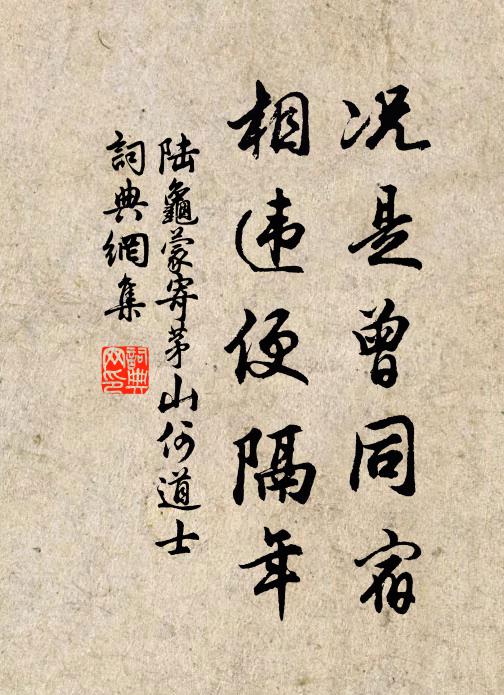 况是曾同宿
相违便隔年
陆龜蒙寄茅山何道士
詞典網集
詞典网印